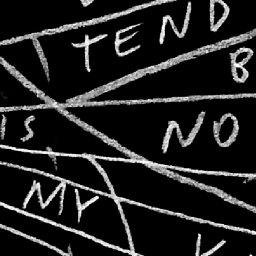 TEND
B
IS
NO
MY